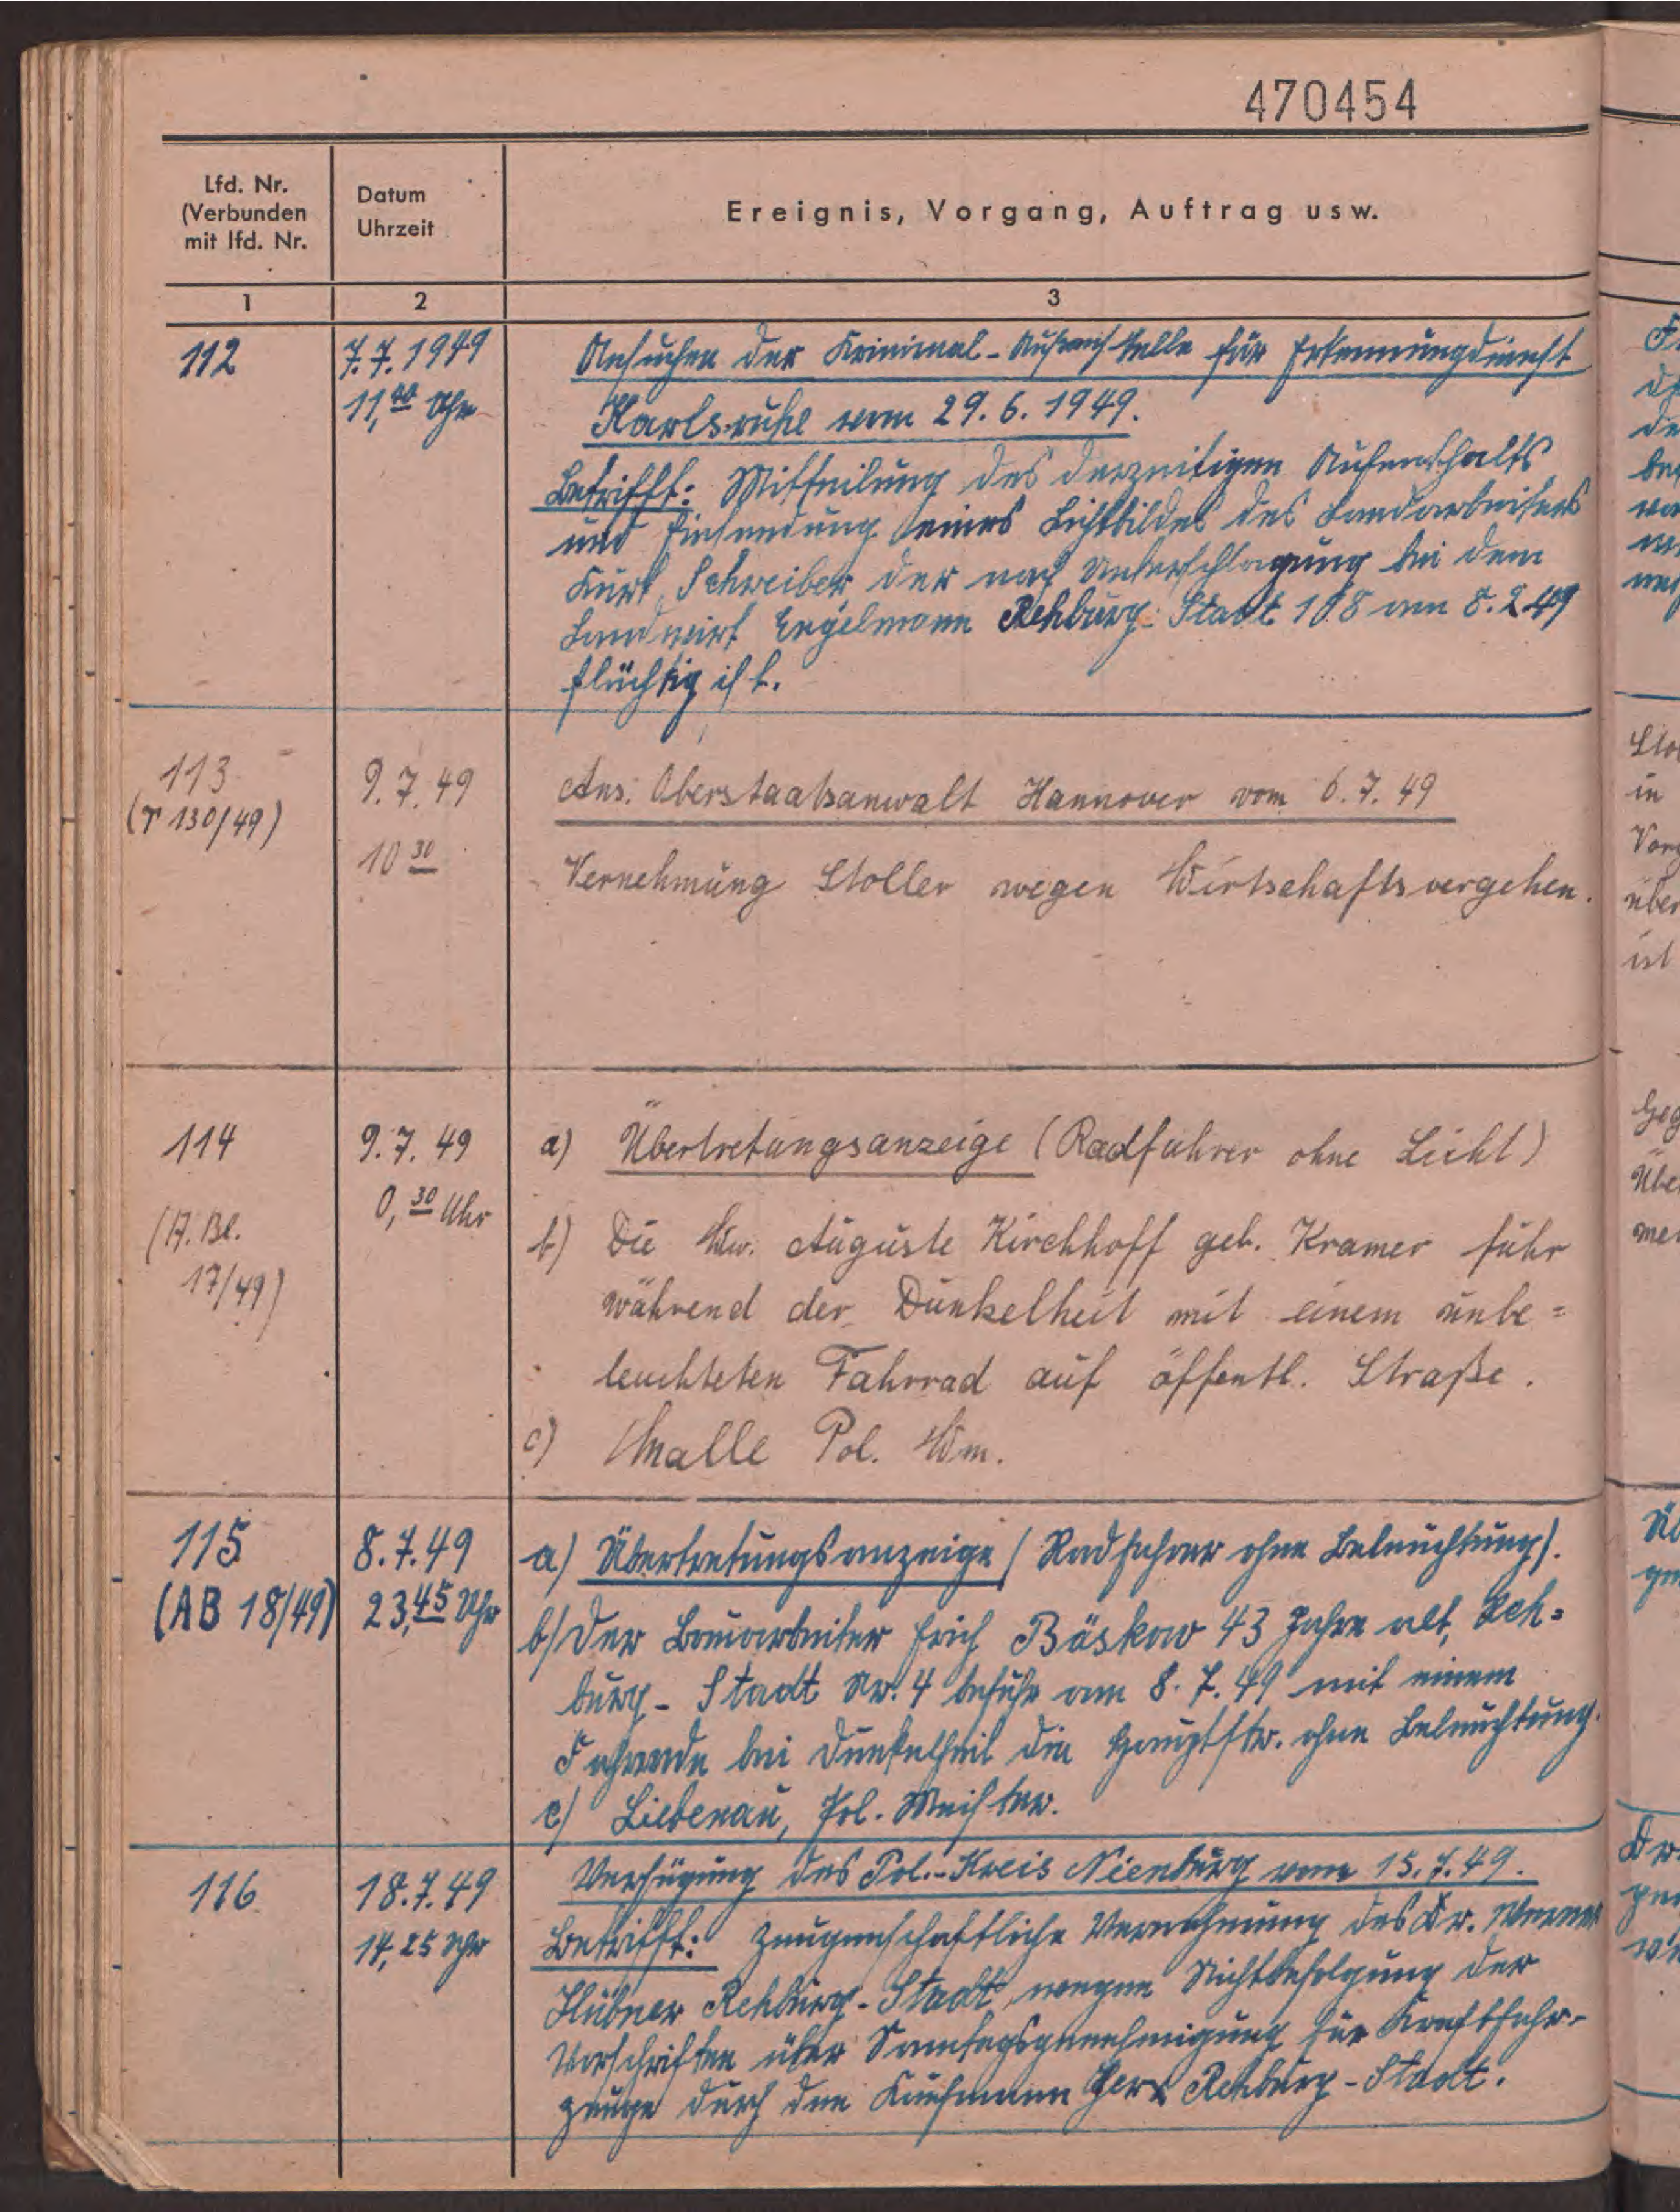 470454
Lfd. Nr.
(Verbunden
mit lfd. Nr.
Datum
Uhrzeit
Ereignis, Vorgang, Auftrag usw.
1
2
3
112
7.7.1949
11,40 Uhr
Ansuchen der Kriminal-Außenstelle für Erkennungsdienst
Karlsruhe vom 29.6.1949.
Betrifft: Mitteilung des derzeitigen Aufenthalts
und Einsendung eines Lichtbildes des Landarbeiters
Kurt Schreiber der nach Unterschlagung bei dem
Landwirt Engelmann Rehburg-Stadt 108 am 8.2.49
flüchtig ist.
113
(T 130/49)
9.7.49
10 30
Ans. Oberstaatsanwalt Hannover vom 6.7.49
Vernehmung Stoller wegen Wirtschaftsvergehen.
114
(A. Bl.
17/49)
9.7.49
0,30 Uhr
a) Übertretungsanzeige (Radfahrer ohne Licht)
b) Die Ww. Auguste Kirchhoff geb. Kramer fuhr
während der Dunkelheit mit einem unbe=
leuchteten Fahrrad auf öffentl. Straße.
c) Pol. Wm.
115
(AB 18/49)
8.7.49
23,45 Uhr
a) Übertretungsanzeige (Radfahrer ohne Beleuchtung).
b) Der Bauarbeiter Erich Bäskow 43 Jahre alt, Reh=
burg-Stadt Nr. 4 befuhr am 8.7.49 mit einem
Fahrrade bei Dunkelheit die Hauptstr. ohne Beleuchtung.
c) Liebenau, Pol. Meister.
116
18.7.49
14,25 Uhr
Verfügung des Pol.-Kreis Nienburg vom 15.7.49.
Betrifft: Zeugenschaftliche Vernehmung des Dr. Werner
Hübner Rehburg-Stadt, wegen Nichtbefolgung der
Vorschriften über Sonntagsgenehmigung für Kraftfahr-
zeuge durch den Kaufmann Rehburg-Stadt.